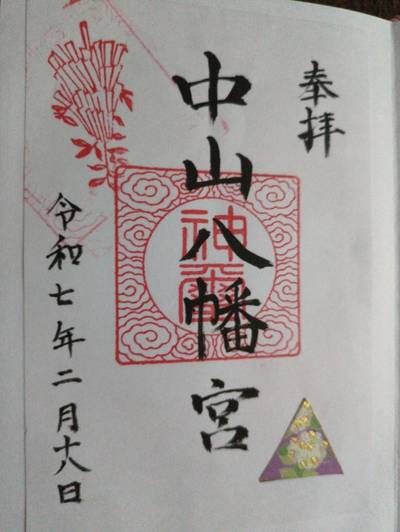 奉拝
中山八幡宮
神璽
令和七年二月十八日